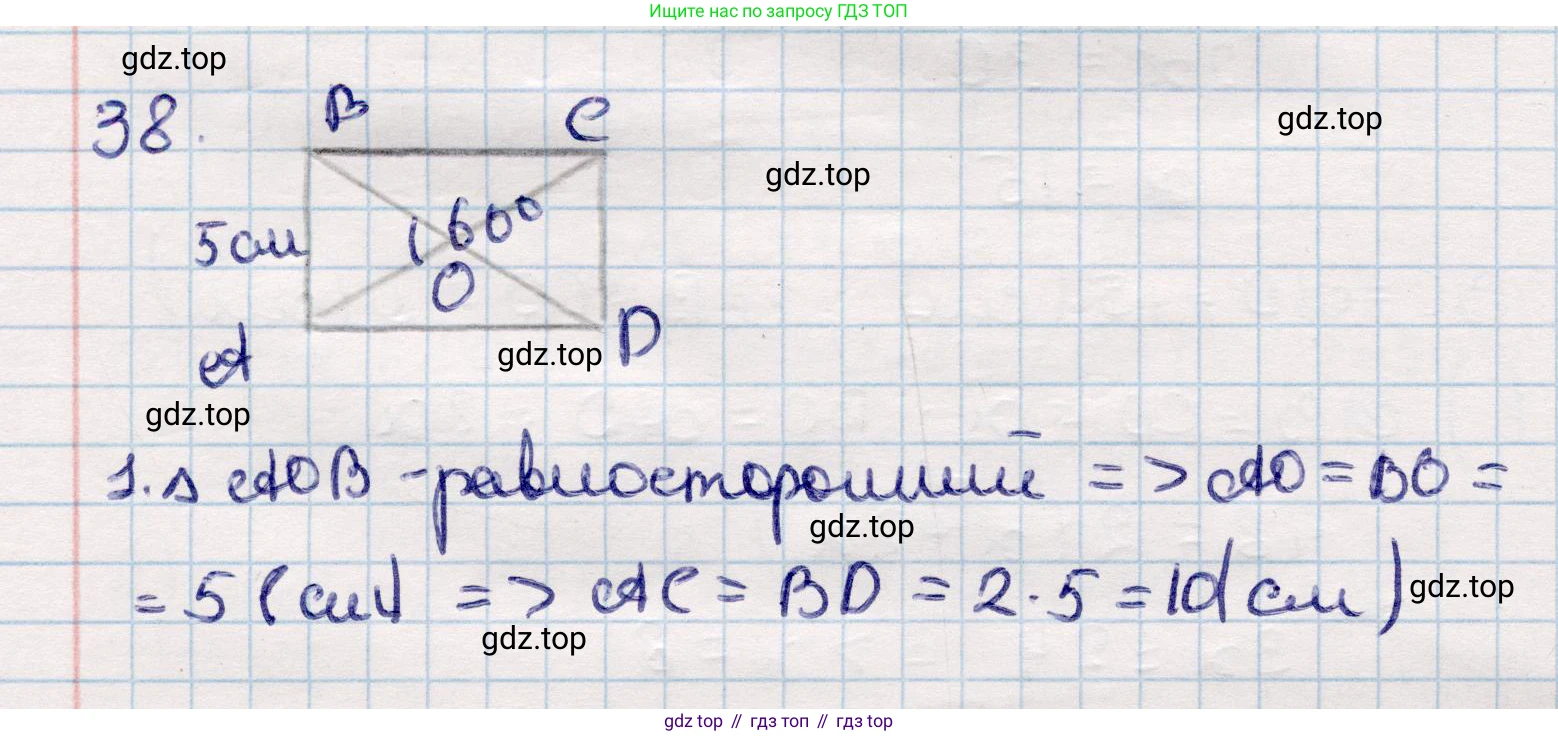 Ищите нас по запросу ГДЗ ТОП
gdz.top
38.
B
C
gdz.top
gdz.top
5 см
60°
O
A
D
gdz.top
gdz.top
1. Δ AOB - равносторонний => AO = BO =
gdz.top
= 5 (см) => AC = BD = 2 · 5 = 10 (см)
gdz.top
gdz.top
gdz top // гдз топ // гдз top